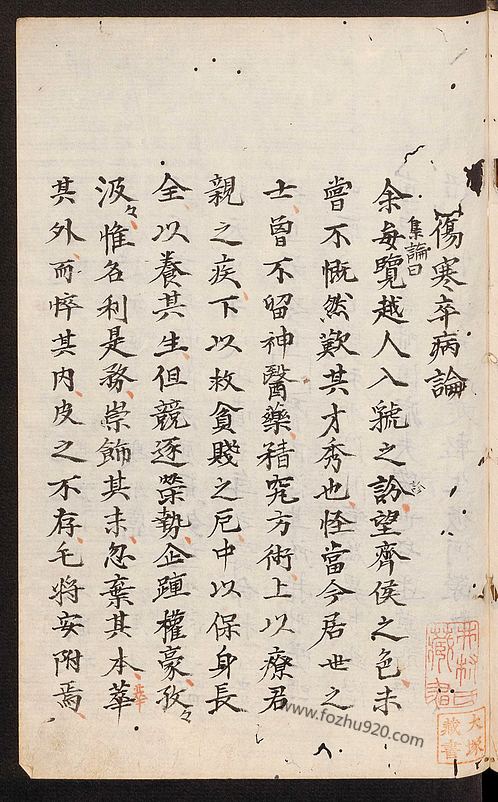 傷寒卒病論
集論曰
余每覽越人入虢之訡望齊侯之色未
診
嘗不慨然歎其才秀也怪當今居世之
士曾不留神醫藥精究方術上以療君
親之疾下以救貧賤之厄中以保身長
全以養其生但競逐榮勢企踵權豪孜々
汲々惟名利是務崇飾其末忽棄其本華
其外而悴其內皮之不存毛將安附焉
藏書
大塚藏書
www.fozhu920.com